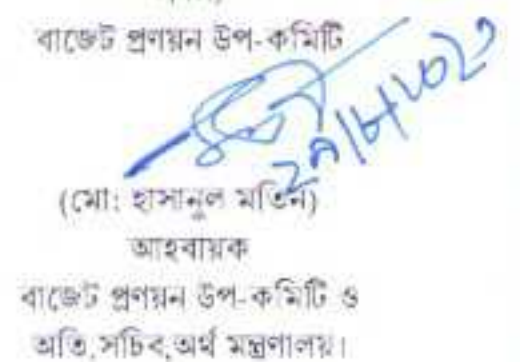 বাজেট প্রণয়ন উপ-কমিটি
(মো: হাসানুল মতিন)
আহবায়ক
বাজেট প্রণয়ন উপ-কমিটি ও
অতি.সচিব,অর্থ মন্ত্রণালয়।